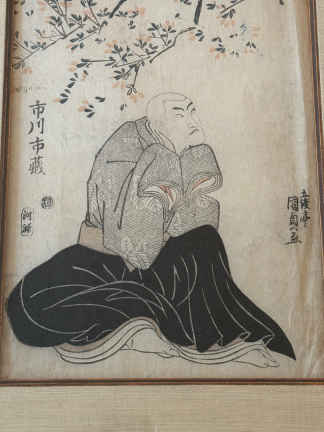 五渡亭
国貞画
市川市蔵